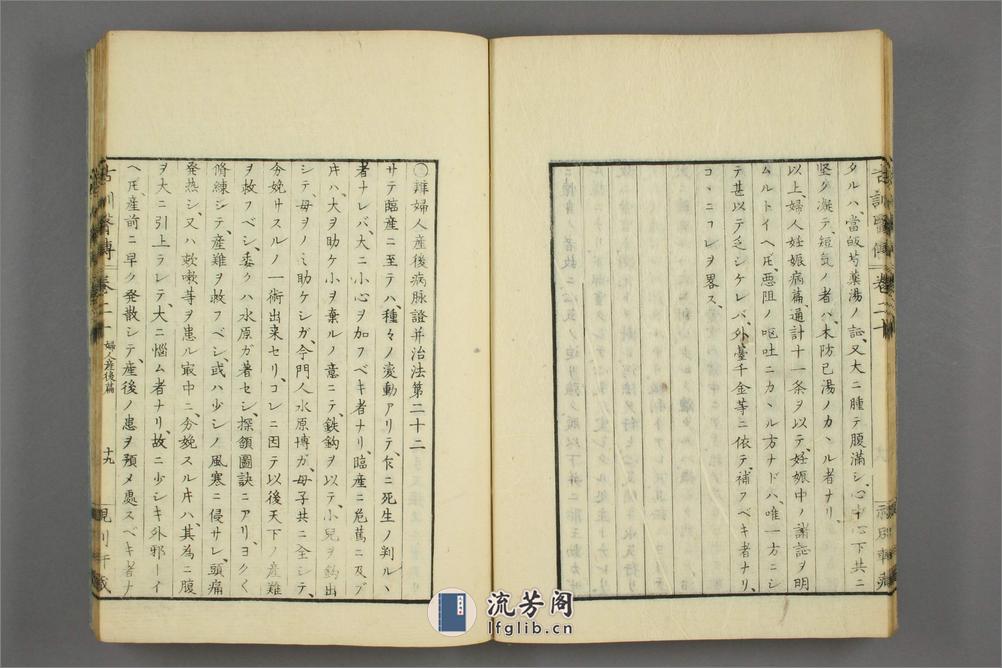 タルハ、當皈芍薬湯ノ証、又大ニ腫テ腹滿シ、心中心下共ニ
堅ク凝テ、短気ノ者ハ、木防已湯ノカヽル者ナリ、
以上、婦人妊娠病篇、通計十一条ヲ以テ、妊娠中ノ諸証ヲ明
ムルトイヘ𪜈、悪阻ノ嘔吐ニカヽル方ナドハ、唯一方ニシ
テ甚以テ乏シケレバ、外臺千金等ニ依テ、補フベキ者ナリ、
コヽニコレヲ畧ス、
古訓醫傳
卷二十
〇辨婦人産後病脉證并治法第二十二
サテ臨産ニ至テハ、種々ノ変動アリテ、乍ニ死生ノ判ルヽ
者ナレバ、大ニ小心ヲ加フベキ者ナリ、臨産ニ危篤ニ及ブ
𪜈ハ、大ヲ助ケ小ヲ棄ルノ意ニテ、鉄鈎ヲ以テ、小兒ヲ鈎出
シテ、母ヲノミ助ケシガ、今門人水原博ガ、母子共ニ全シテ、
分娩サスルノ一術出来セリ、コレニ因テ以後天下ノ産難
ヲ救フベシ、委クハ水原ガ著セシ、探頷圖訣ニアリ、ヨクく
脩練シテ、産難ヲ救フベシ、或ハ少シノ風寒ニ侵サレ、頭痛
発热シ、又ハ欬嗽等ヲ患ル㝡中ニ、分娩スル𪜈ハ、其為ニ腹
ヲ大ニ引上ラレテ、大ニ惱ム者ナリ、故ニ少シキ外邪ーイ
ヘ𪜈、産前ニ早ク発散シテ、産後ノ患ヲ預メ處スベキ者ナ
古訓醫傳
卷二十
婦人産後篇
十九
流芳阁
lfglib.cn